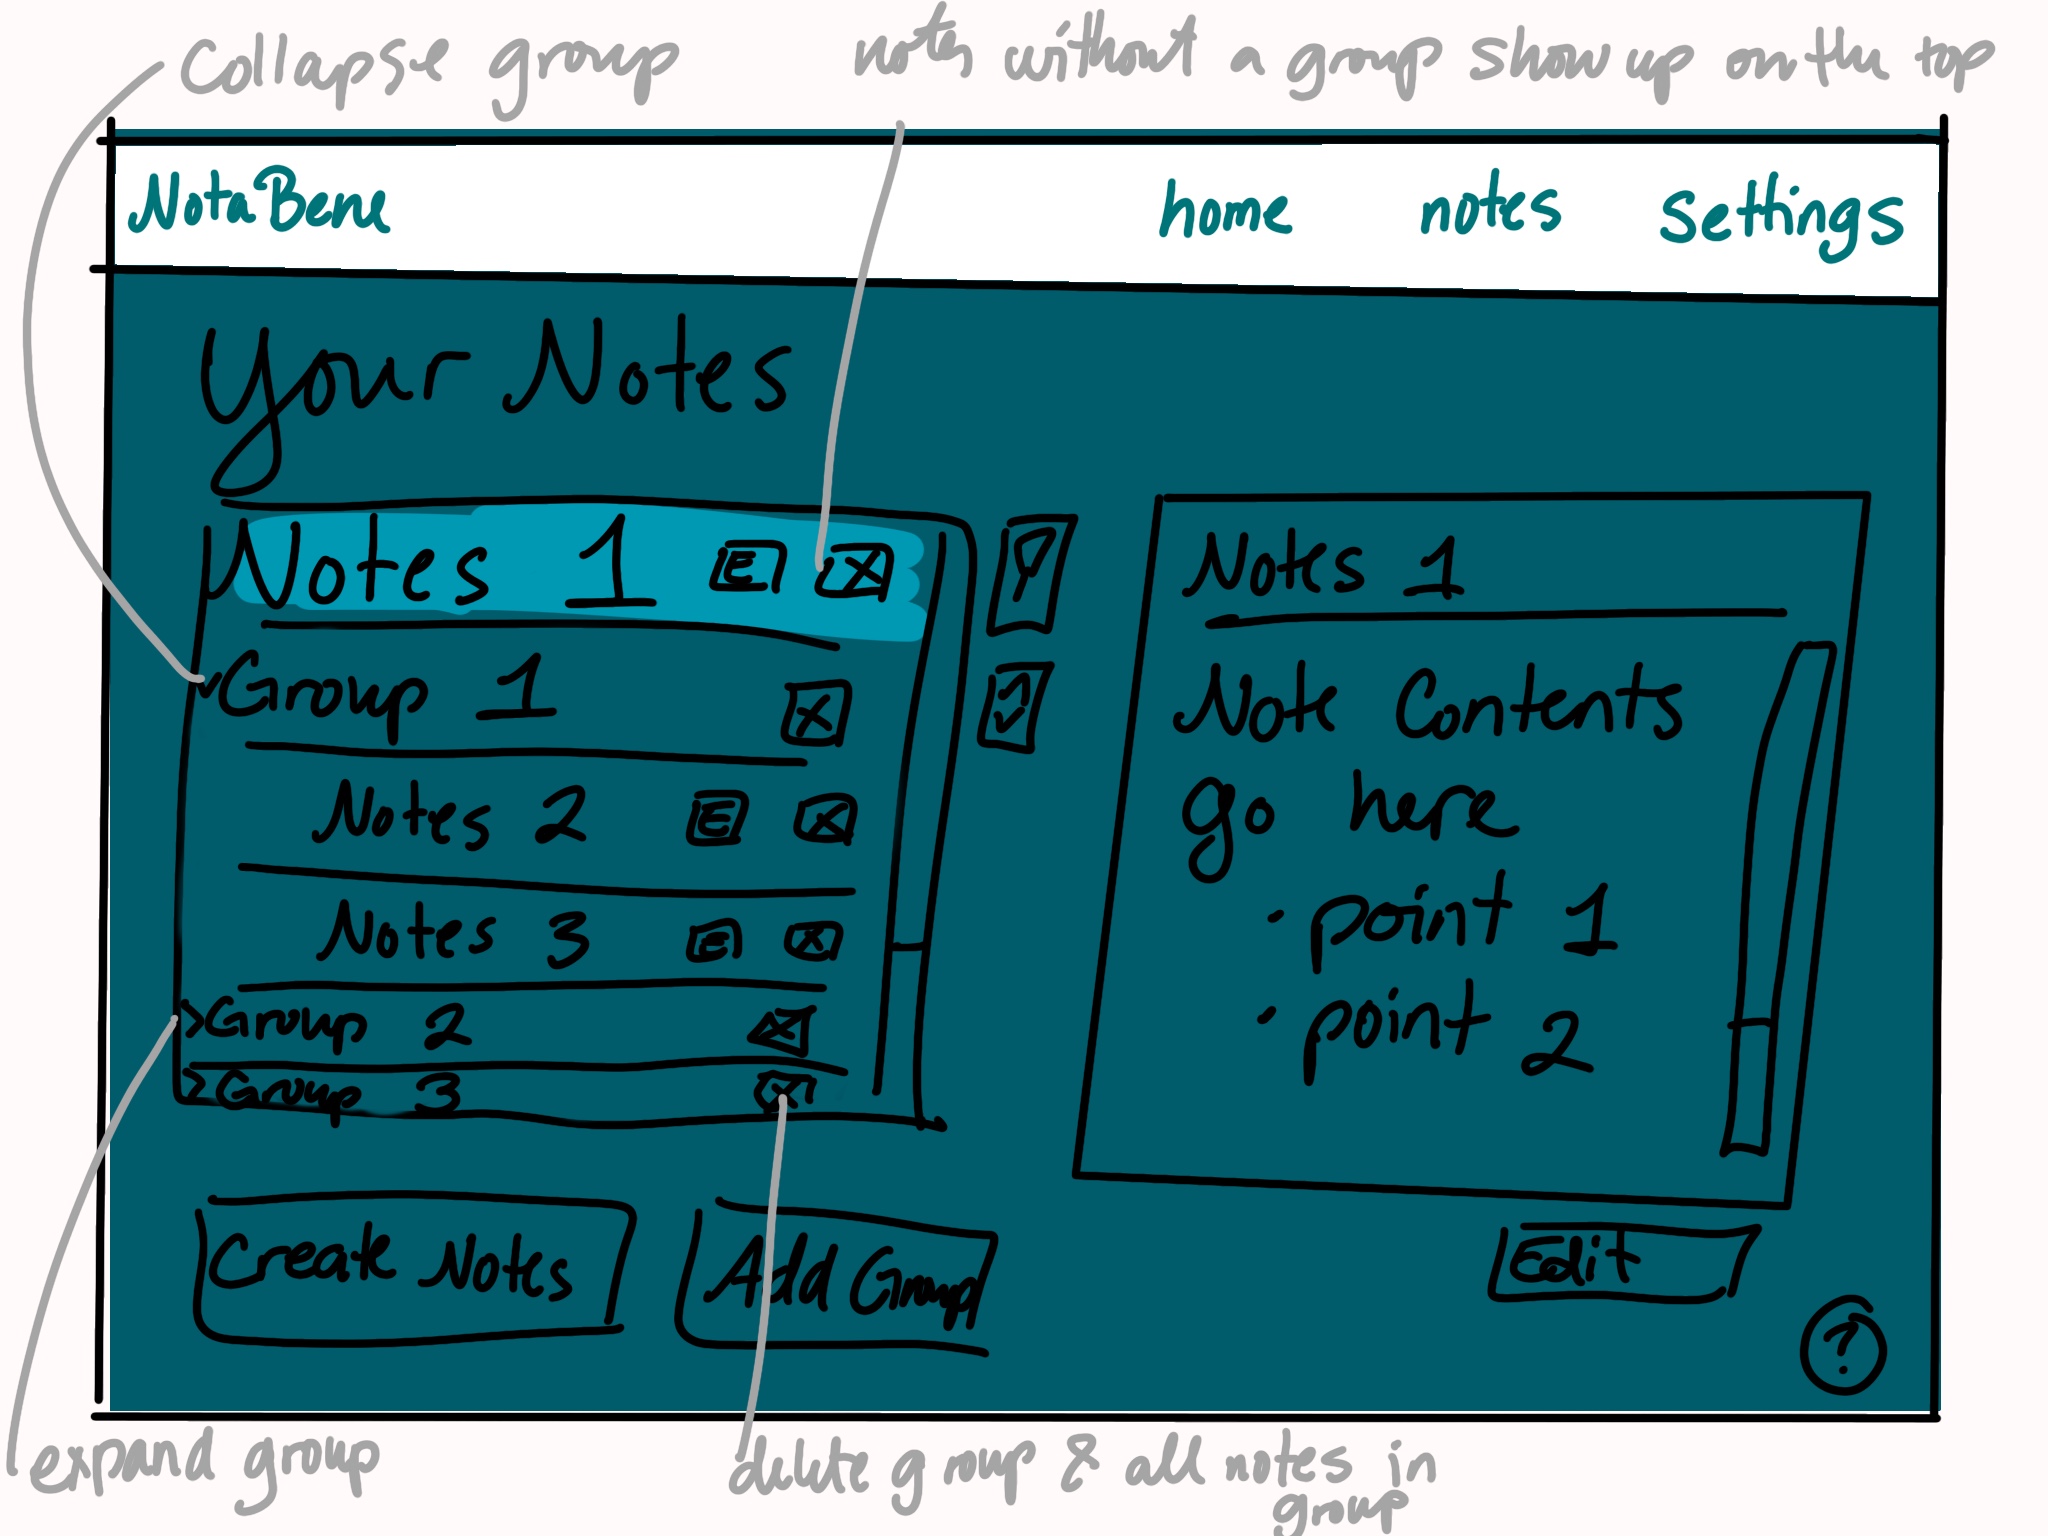 Collapse group
notes without a group show up on the top
NotaBene
home notes settings
Your Notes
Notes 1 E X
Group 1 X
Notes 2 E X
Notes 3 E X
> Group 2 X
> Group 3 X
Notes 1
Note Contents
go here
· point 1
· point 2
Create Notes
Add Group
Edit
?
expand group
delete group & all notes in
group